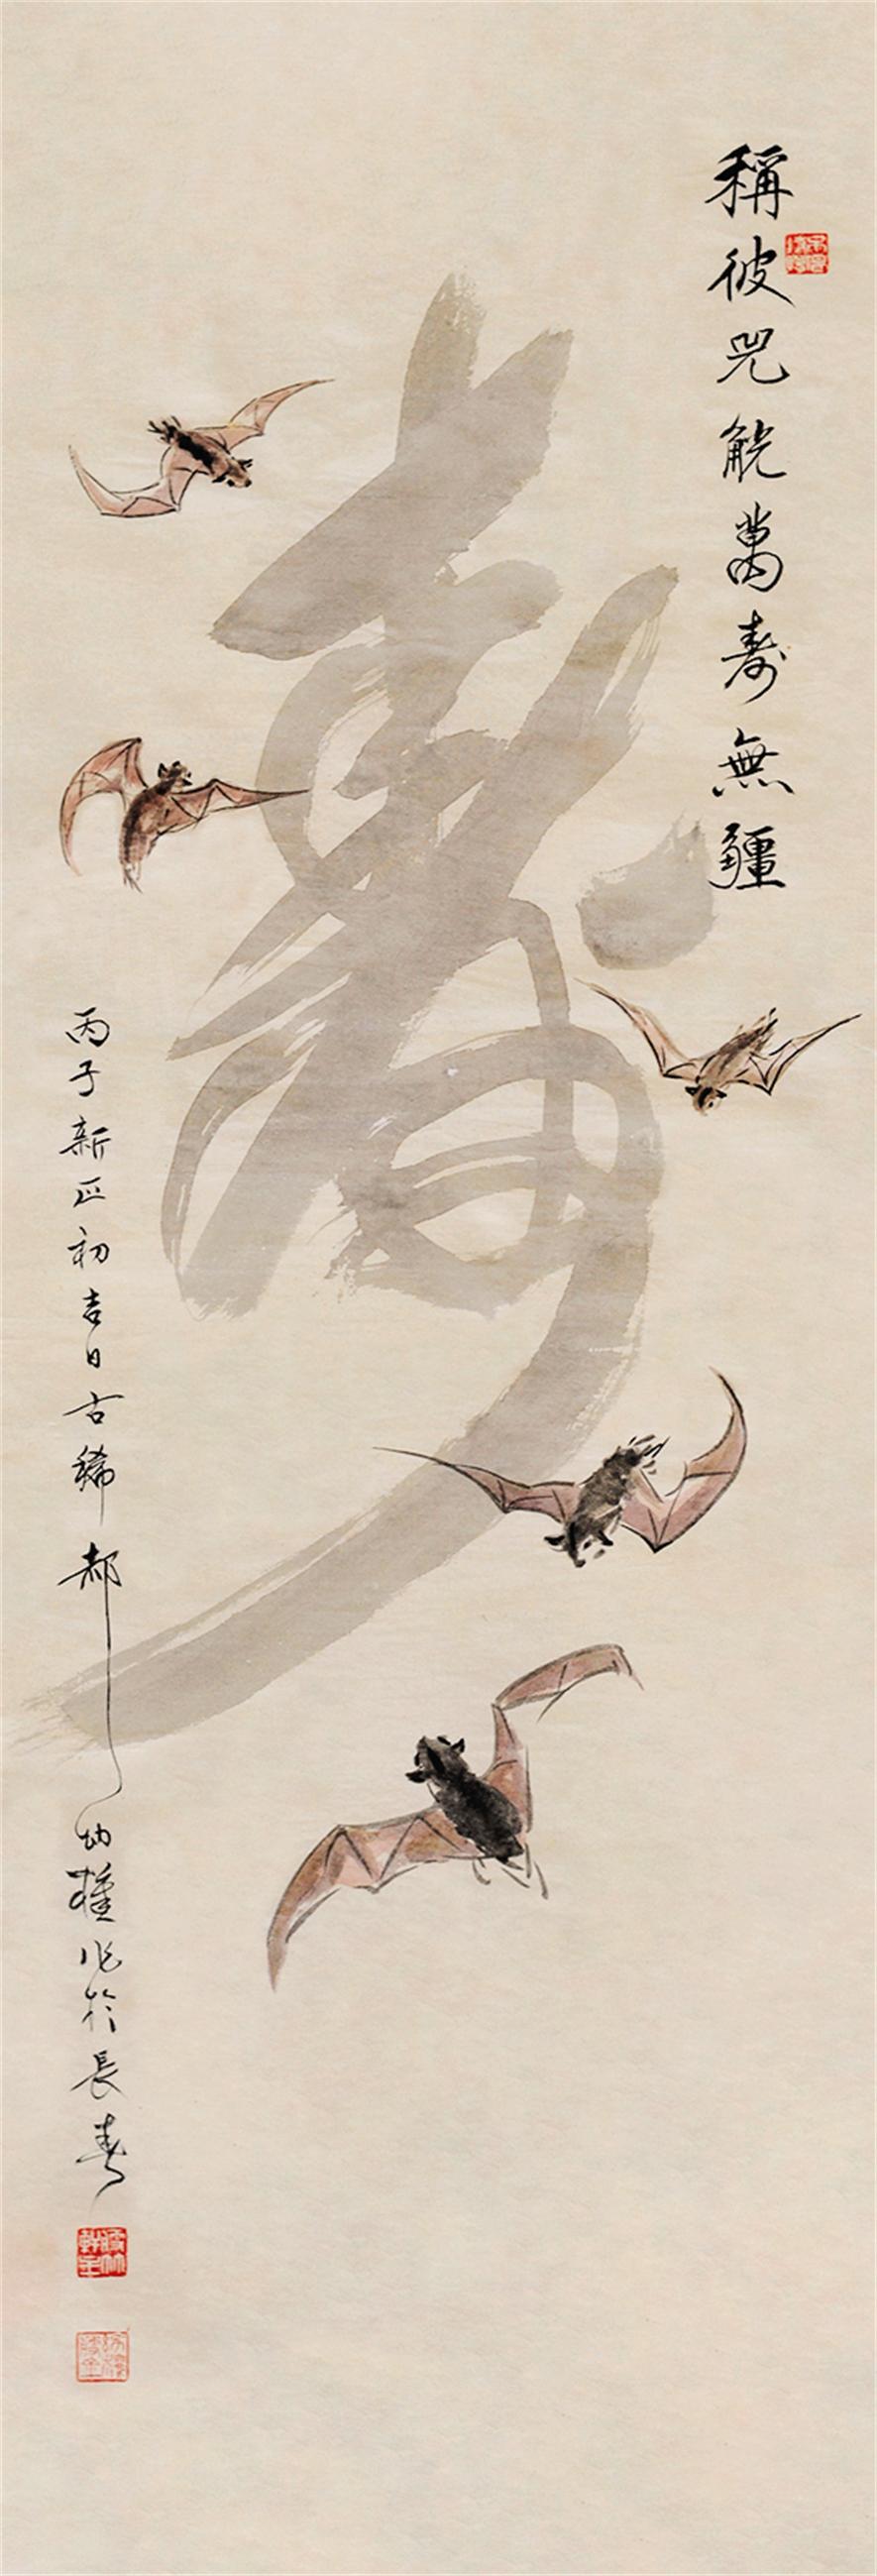 稱彼兕觥萬壽無疆
壽
丙子新正初吉日古稀郝幼權作於長春